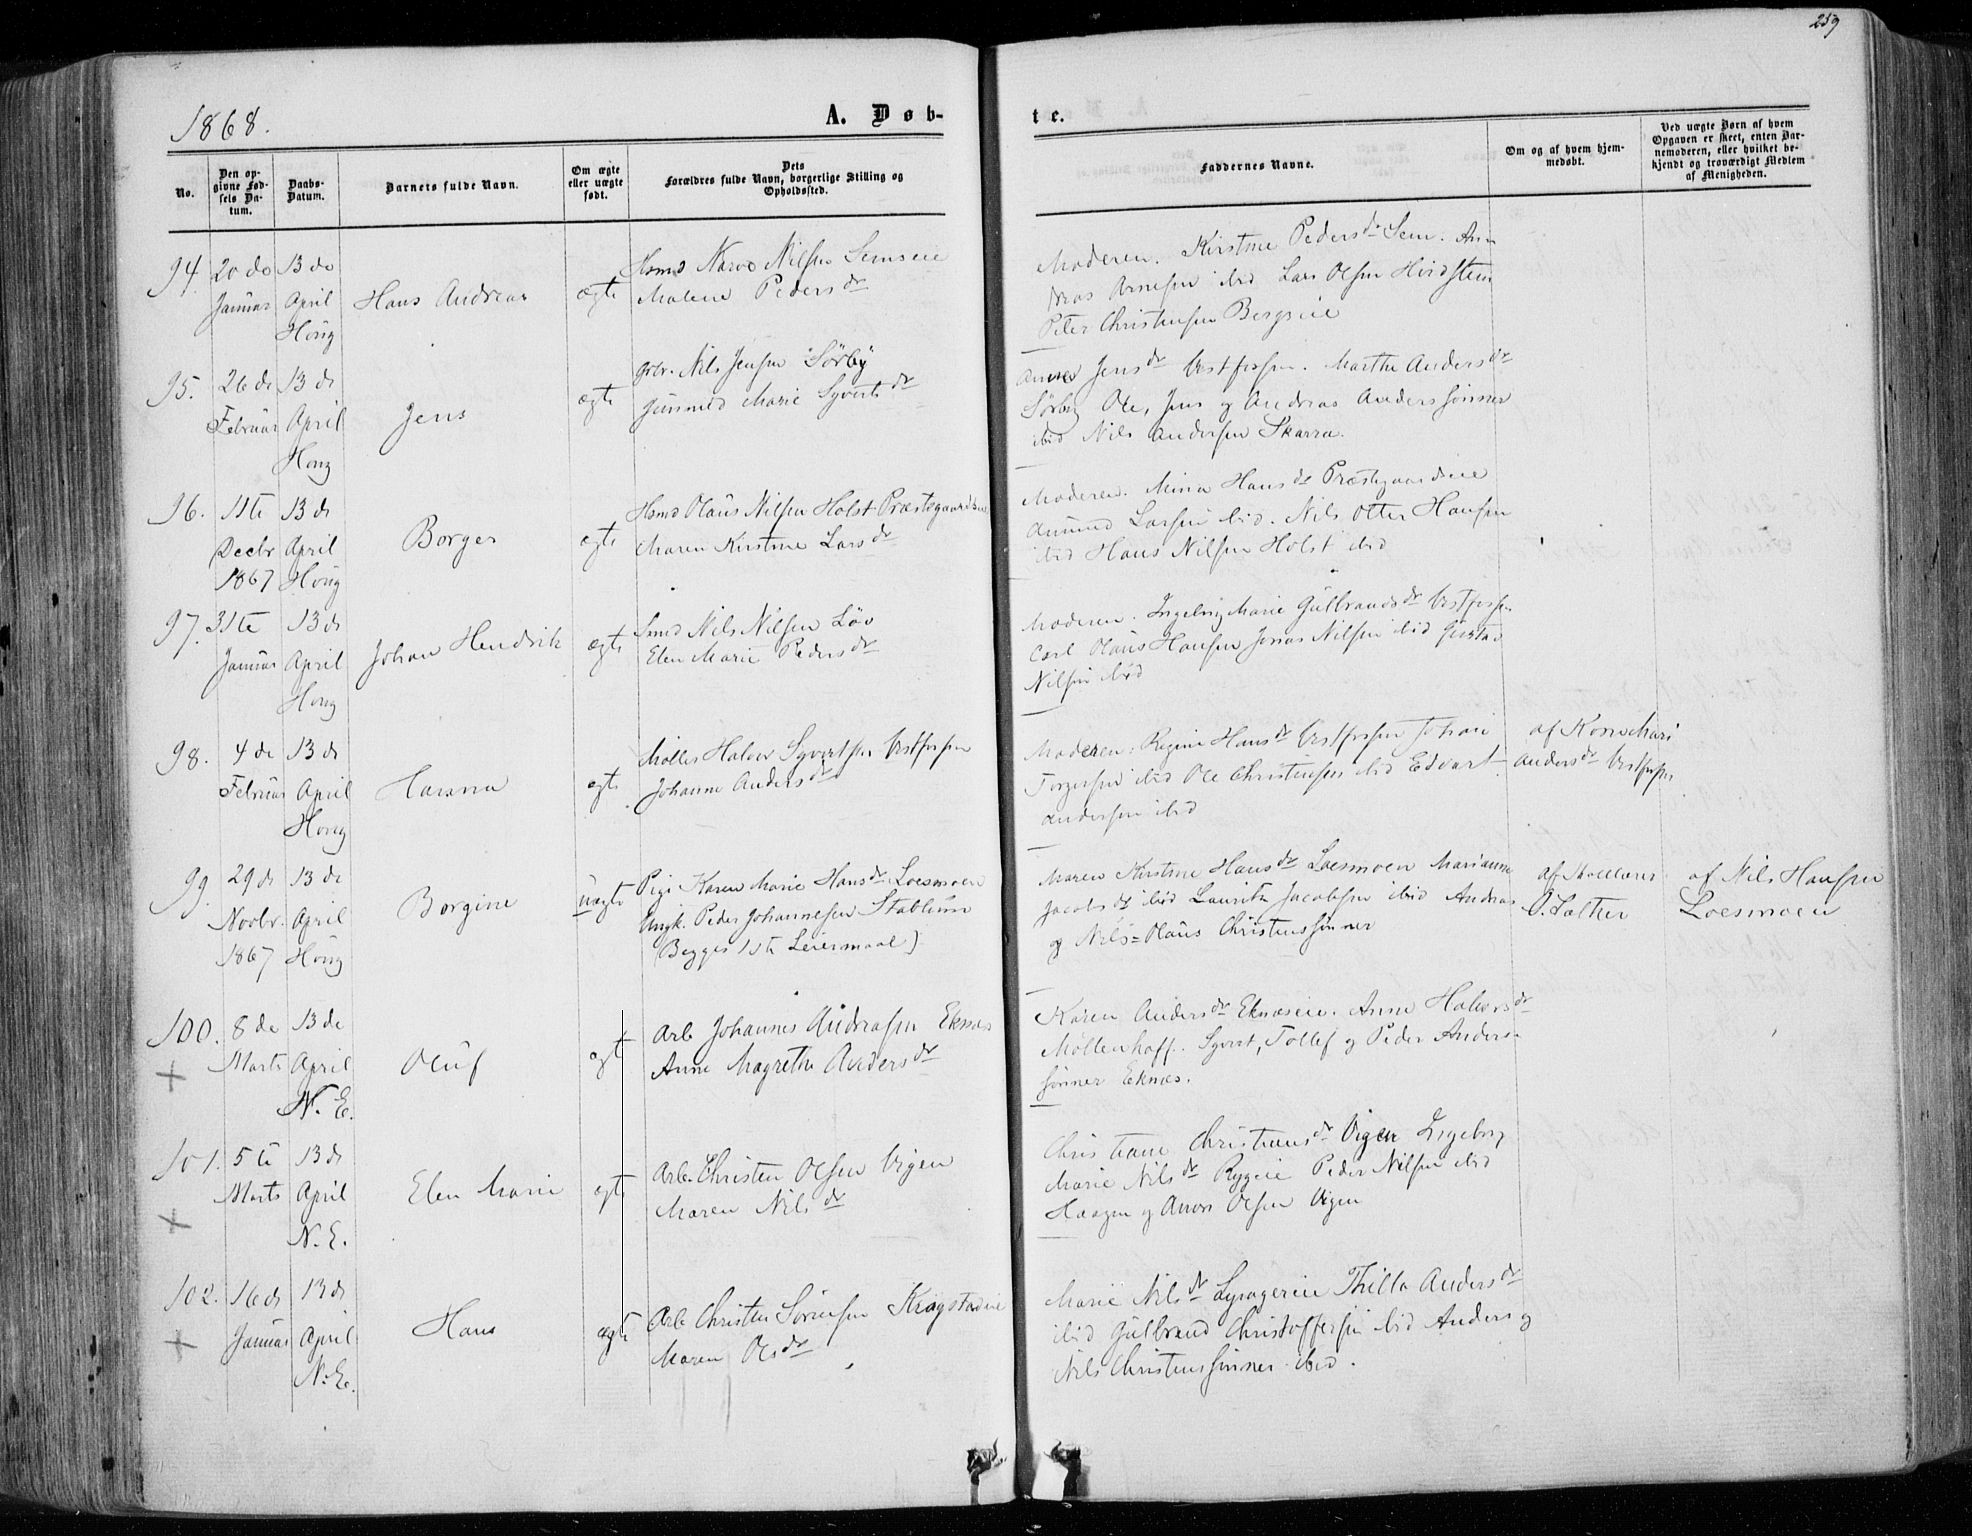 259
1868.
A. Døb-
te.
No.
Den op-
givne Fød-
sels Da-
tum.
Daabs-
Datum.
Barnets fulde Navn.
Om ægte
eller uægte
født.
Dets
Forældres fulde Navn, borgerlige Stilling og
Opholdssted.
Faddernes Navne.
Om og af hvem hjem-
medøbt.
Ved uægte Børn af hvem
Opgaven er skeet, enten Bar-
nemoderen, eller hvilket be-
kjendt og troværdigt Medlem
af Menigheden.
94.
20 de
Januar
13 de
April
Houg
Hans Andreas
ægte
Hsmd Narve Nilsen Semseie
Malene Peders dr
Moderen. Kirstine Peders dr Sem. An-
dreas Arnesen ibid Lars Olsen Hvidsteen
Peter Christensen Bergseie
95.
26 de
Februar
13 de
April
Houg
Jens
ægte
Grbr. Nils Jensen Sørby
Gunnild Marie Syverts dr
Anne Jens dr Vestfossen. Marthe Anders dr
Sørby Ole, Jens og Andreas Anderssønner
ibid Nils Andersen Skarra.
96.
11te
Decbr
1867
13 de
April
Houg
Borger
ægte
Hsmd Olaus Nilsen Holst Præstegaardseie
Maren Kirstine Lars dr
Moderen. Mina Hans dr Præstegaardseie
Amund Larsen ibid. Nils Otter Hansen
ibid Hans Nilsen Holst ibid
97.
31te
Januar
13 de
April
Houg
Johan Hendrik
ægte
Smd Nils Nilsen Löv
Elen Marie Peders dr
Moderen. Ingeborg Marie Gulbrands dr Vestfossen
Carl Olaus Hansen Jonas Nilsen ibid Gustav
Nilsen ibid
98.
4 de
Februar
13 de
April
Houg
Hanna
ægte
Møller Halvor Syvertsen Vestfossen
Johanne Anders dr
Moderen. Regine Hans dr Vestfossen Johan
Torgersen ibid Ole Christensen ibid Edvart
Andersen ibid
af Kone Mari
Anders dr Vestfossen
99.
29 de
Novbr.
1867
13 de
April
Houg
Borgine
uægte
Pige Karen Marie Hans dr Loesmoen
Ungk. Peder Johannesen Stablum
(Begges 1ste Leiermaal)
Maren Kirstine Hans dr Loesmoen Marianne
Jacobs dr ibid Lauritz Jacobsen ibid Andreas
og Nils Olaus Christenssønner
O. Sather
af Nils Hansen
Loesmoen
100.
8 de
Marts
13 de
April
N. E.
Oluf
ægt
Arb. Johannes Andreasen Eknæs
Anne Magrethe Anders dr
Karen Anders dr Eknæseie. Anne Halvors dr
Möllenhoff. Syvert, Tollef og Peder Anders-
sønner Eknæs.
101.
5te
Marts
13 de
April
N. E.
Elen Marie
ægt
Arb. Christen Olsen Vigen
Maren Nils dr
Christiane Christians dr Vigen Ingeborg
Marie Nils dr Rygeie Peder Nilsen ibid
Haagen og Anders Olsen Vigen
102.
16 de
Januar
13 de
April
N. E.
Hans
ægte
Arb. Christen Sörensen Kragstadeie
Maren Ols dr
Marie Nils dr Thilla Anders dr
ibid Gulbrand Christoffersen ibid Anders og
Nils Christenssønner ibid.